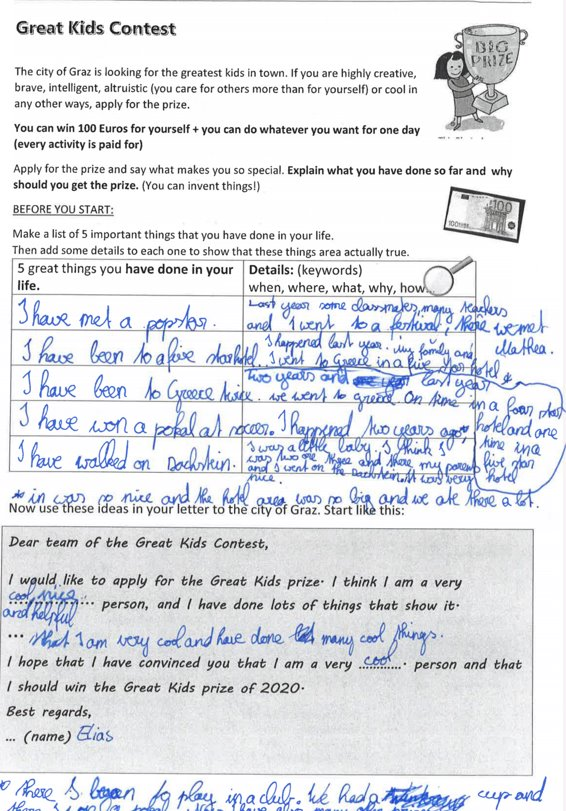 Great Kids Contest
BIG
PRIZE
The city of Graz is looking for the greatest kids in town. If you are highly creative,
brave, intelligent, altruistic (you care for others more than for yourself) or cool in
any other ways, apply for the prize.
You can win 100 Euros for yourself + you can do whatever you want for one day
(every activity is paid for)
Apply for the prize and say what makes you so special. Explain what you have done so far and why
should you get the prize. (You can invent things!)
BEFORE YOU START:
100
Make a list of 5 important things that you have done in your life.
Then add some details to each one to show that these things area actually true.
5 great things you have done in your
life.
Details: (keywords)
when, where, what, why, how..
I have met a popstar.
Last year some classmates, many teachers
and I went to a festival, there we met
Mathea.
I have been to a five star hotel.
I happened last year. My family and
I went to Greece in a five star hotel
I have been to Greece twice.
Two years and last year
we went to greece. On time in a four star
hotel and one
time in a
five star
hotel
I have won a pokal at soccer.
I happened two years ago
I have walked on Dachstein.
I was a little baby. I think I
was two ore three and there my parents
and I went on the Dachstein. It was very
nice.
in was so nice and the hotel area was so big and we ate there a lot.
Now use these ideas in your letter to the city of Graz. Start like this:
Dear team of the Great Kids Contest,
I would like to apply for the Great Kids prize. I think I am a very
cool, nice
and helpful
person, and I have done lots of things that show it.
... I am very cool and have done many cool things.
I hope that I have convinced you that I am a very cool person and that
I should win the Great Kids prize of 2020.
Best regards,
... (name) Elias
there I began to play in a club. We had a cup and